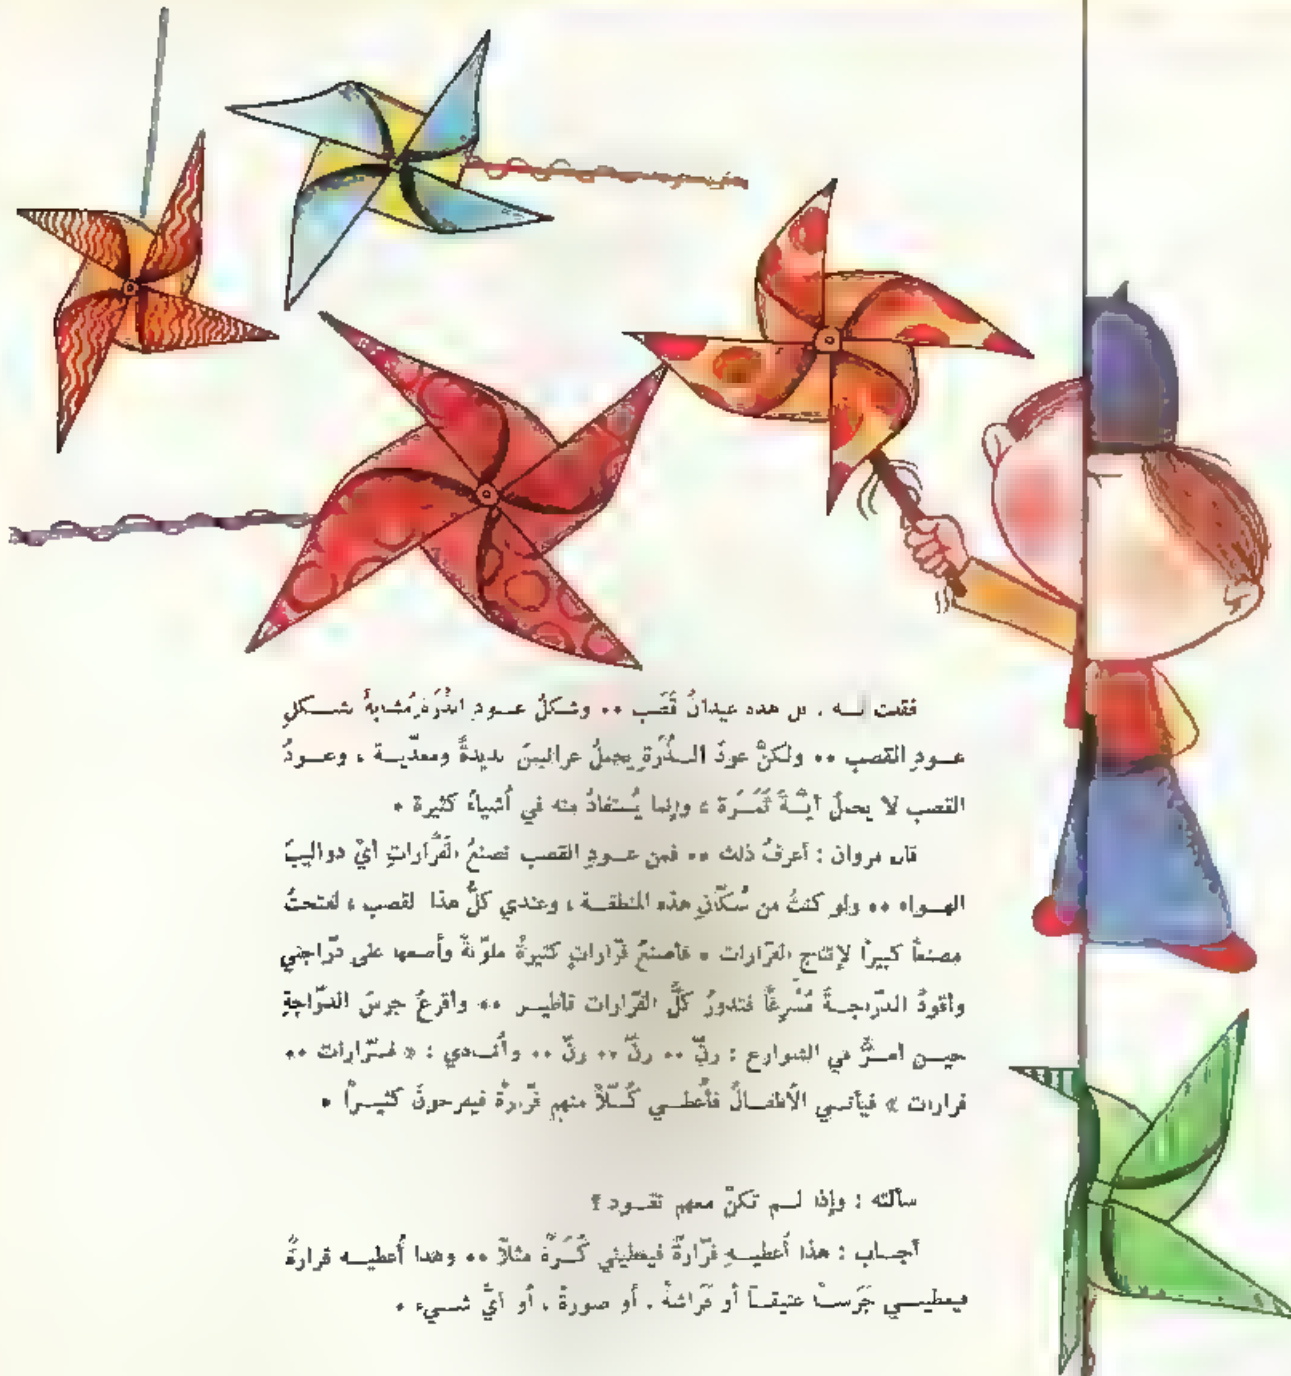 فقلت له : بل هذه عيدانُ قَصَب •• وشكلُ عـود الذُرَة مُشابهٌ لشـكلِ
عـودِ القصبِ •• ولكنَّ عودَ الـذُّرَةِ يحملُ عرانيسَ لذيذةً ومغذّيـة ، وعـودُ
القصب لا يحملُ أيَّـةَ ثَمَـرة ، وإنما يُستفادُ منه في أشياءَ كثيرة •
قال مروان : أعرفُ ذلك •• فمن عـودِ القصب نصنعُ الفَرَّاراتِ أيْ دواليبَ
الهـواء •• ولو كنتُ من سُكّانِ هذه المنطقـة ، وعندي كلُّ هذا القصب ، لفتحتُ
مصنعاً كبيراً لإنتاج الفرّارات • فأصنعُ فرّاراتٍ كثيرةً ملوّنةً وأضعها على درّاجتي
وأقودُ الدرّاجـةَ مُسْرِعاً فتدورُ كلُّ الفرّارات فأطيـر •• وأقرعُ جرسَ الدرّاجةِ
حيـن أمـرُّ في الشوارع : رنّ •• رنّ •• رنّ •• وأُنـادي : « فـرّارات ••
فرارات » فيأتـي الأطفـالُ فأُعطـي كُـلّاً منهم فرّارةً فيفرحونَ كثيـراً •
سألته : وإذا لـم تكنْ معهم نقـود ؟
أجـاب : هذا أُعطيـهِ فرّارةً فيعطيني كُـرَةً مثلاً •• وهذا أُعطيـه فرارةً
فيعطيـني جَرَسـاً عتيقـاً أو فَراشةً ، أو صورةً ، أو أيَّ شـيء •